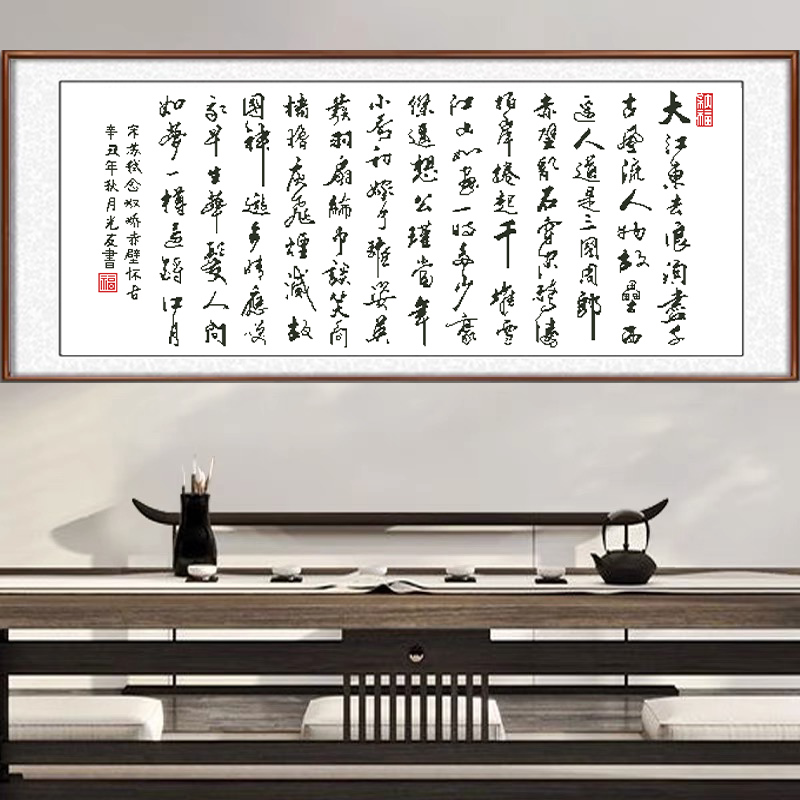 大江東去浪淘盡千
古風流人物故壘西
邊人道是三國周郎
赤壁亂石穿空驚濤
拍岸捲起千堆雪
江山如畫一時多少豪
傑遥想公瑾當年
小喬初嫁了雄姿英
發羽扇綸巾談笑間
檣櫓灰飛煙滅故
國神遊多情應笑
我早生華髮人間
如夢一樽還酹江月
宋苏轼念奴娇赤壁怀古
辛丑年秋月光友書
福